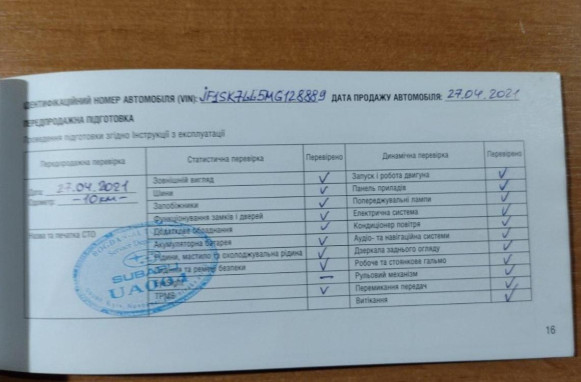 ІДЕНТИФІКАЦІЙНИЙ НОМЕР АВТОМОБІЛЯ (VIN): JF1SK7LL5MG128889 ДАТА ПРОДАЖУ АВТОМОБІЛЯ: 27.04.2021
ПЕРЕДПРОДАЖНА ПІДГОТОВКА
Проведення підготовки згідно Інструкції з експлуатації
Передпродажна перевірка Статистична перевірка Перевірено Динамічна перевірка Перевірено
Дата: 27.04.2021
Одометр: -10км-
Назва та печатка СТО
Зовнішній вигляд
Шини
Запобіжники
Функціонування замків і дверей
Додаткове обладнання
Акумуляторна батарея
Рідини, мастило та охолоджувальна рідина
та ремені безпеки
TPMS
Запуск і робота двигуна
Панель приладів
Попереджувальні лампи
Електрична система
Кондиціонер повітря
Аудіо- та навігаційні системи
Дзеркала заднього огляду
Робоче та стоянкове гальмо
Рульовий механізм
Перемикання передач
Витікання
SUBARU
UA007
16